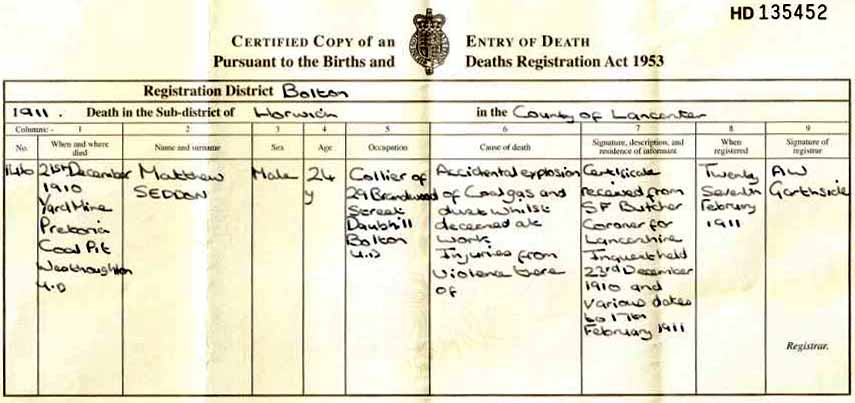 HD 135452
CERTIFIED COPY of an ENTRY OF DEATH
Pursuant to the Births and Deaths Registration Act 1953
Registration District Bolton
1911. Death in the Sub-district of Horwich in the County of Lancaster
Columns:- 1 2 3 4 5 6 7 8 9
No. When and where died Name and surname Sex Age Occupation Cause of death Signature, description, and residence of informant When registered Signature of registrar
146
21st December
1910
Yard Mine
Pretoria
Coal Pit
Westhoughton
U.D
Matthew
SEDDON
Male
24
y
Collier of
29 Brandwood
Street
Daubhill
Bolton
U.D
Accidental explosion
of Coal gas and
dust whilst
deceased at
work
Injuries from
Violence there
of
Certificate
received from
SF Butcher
Coroner for
Lancashire
Inquest held
23rd December
1910 and
various dates
to 17th
February 1911
Twenty
Seventh
February
1911
AW
Garthside
Registrar.